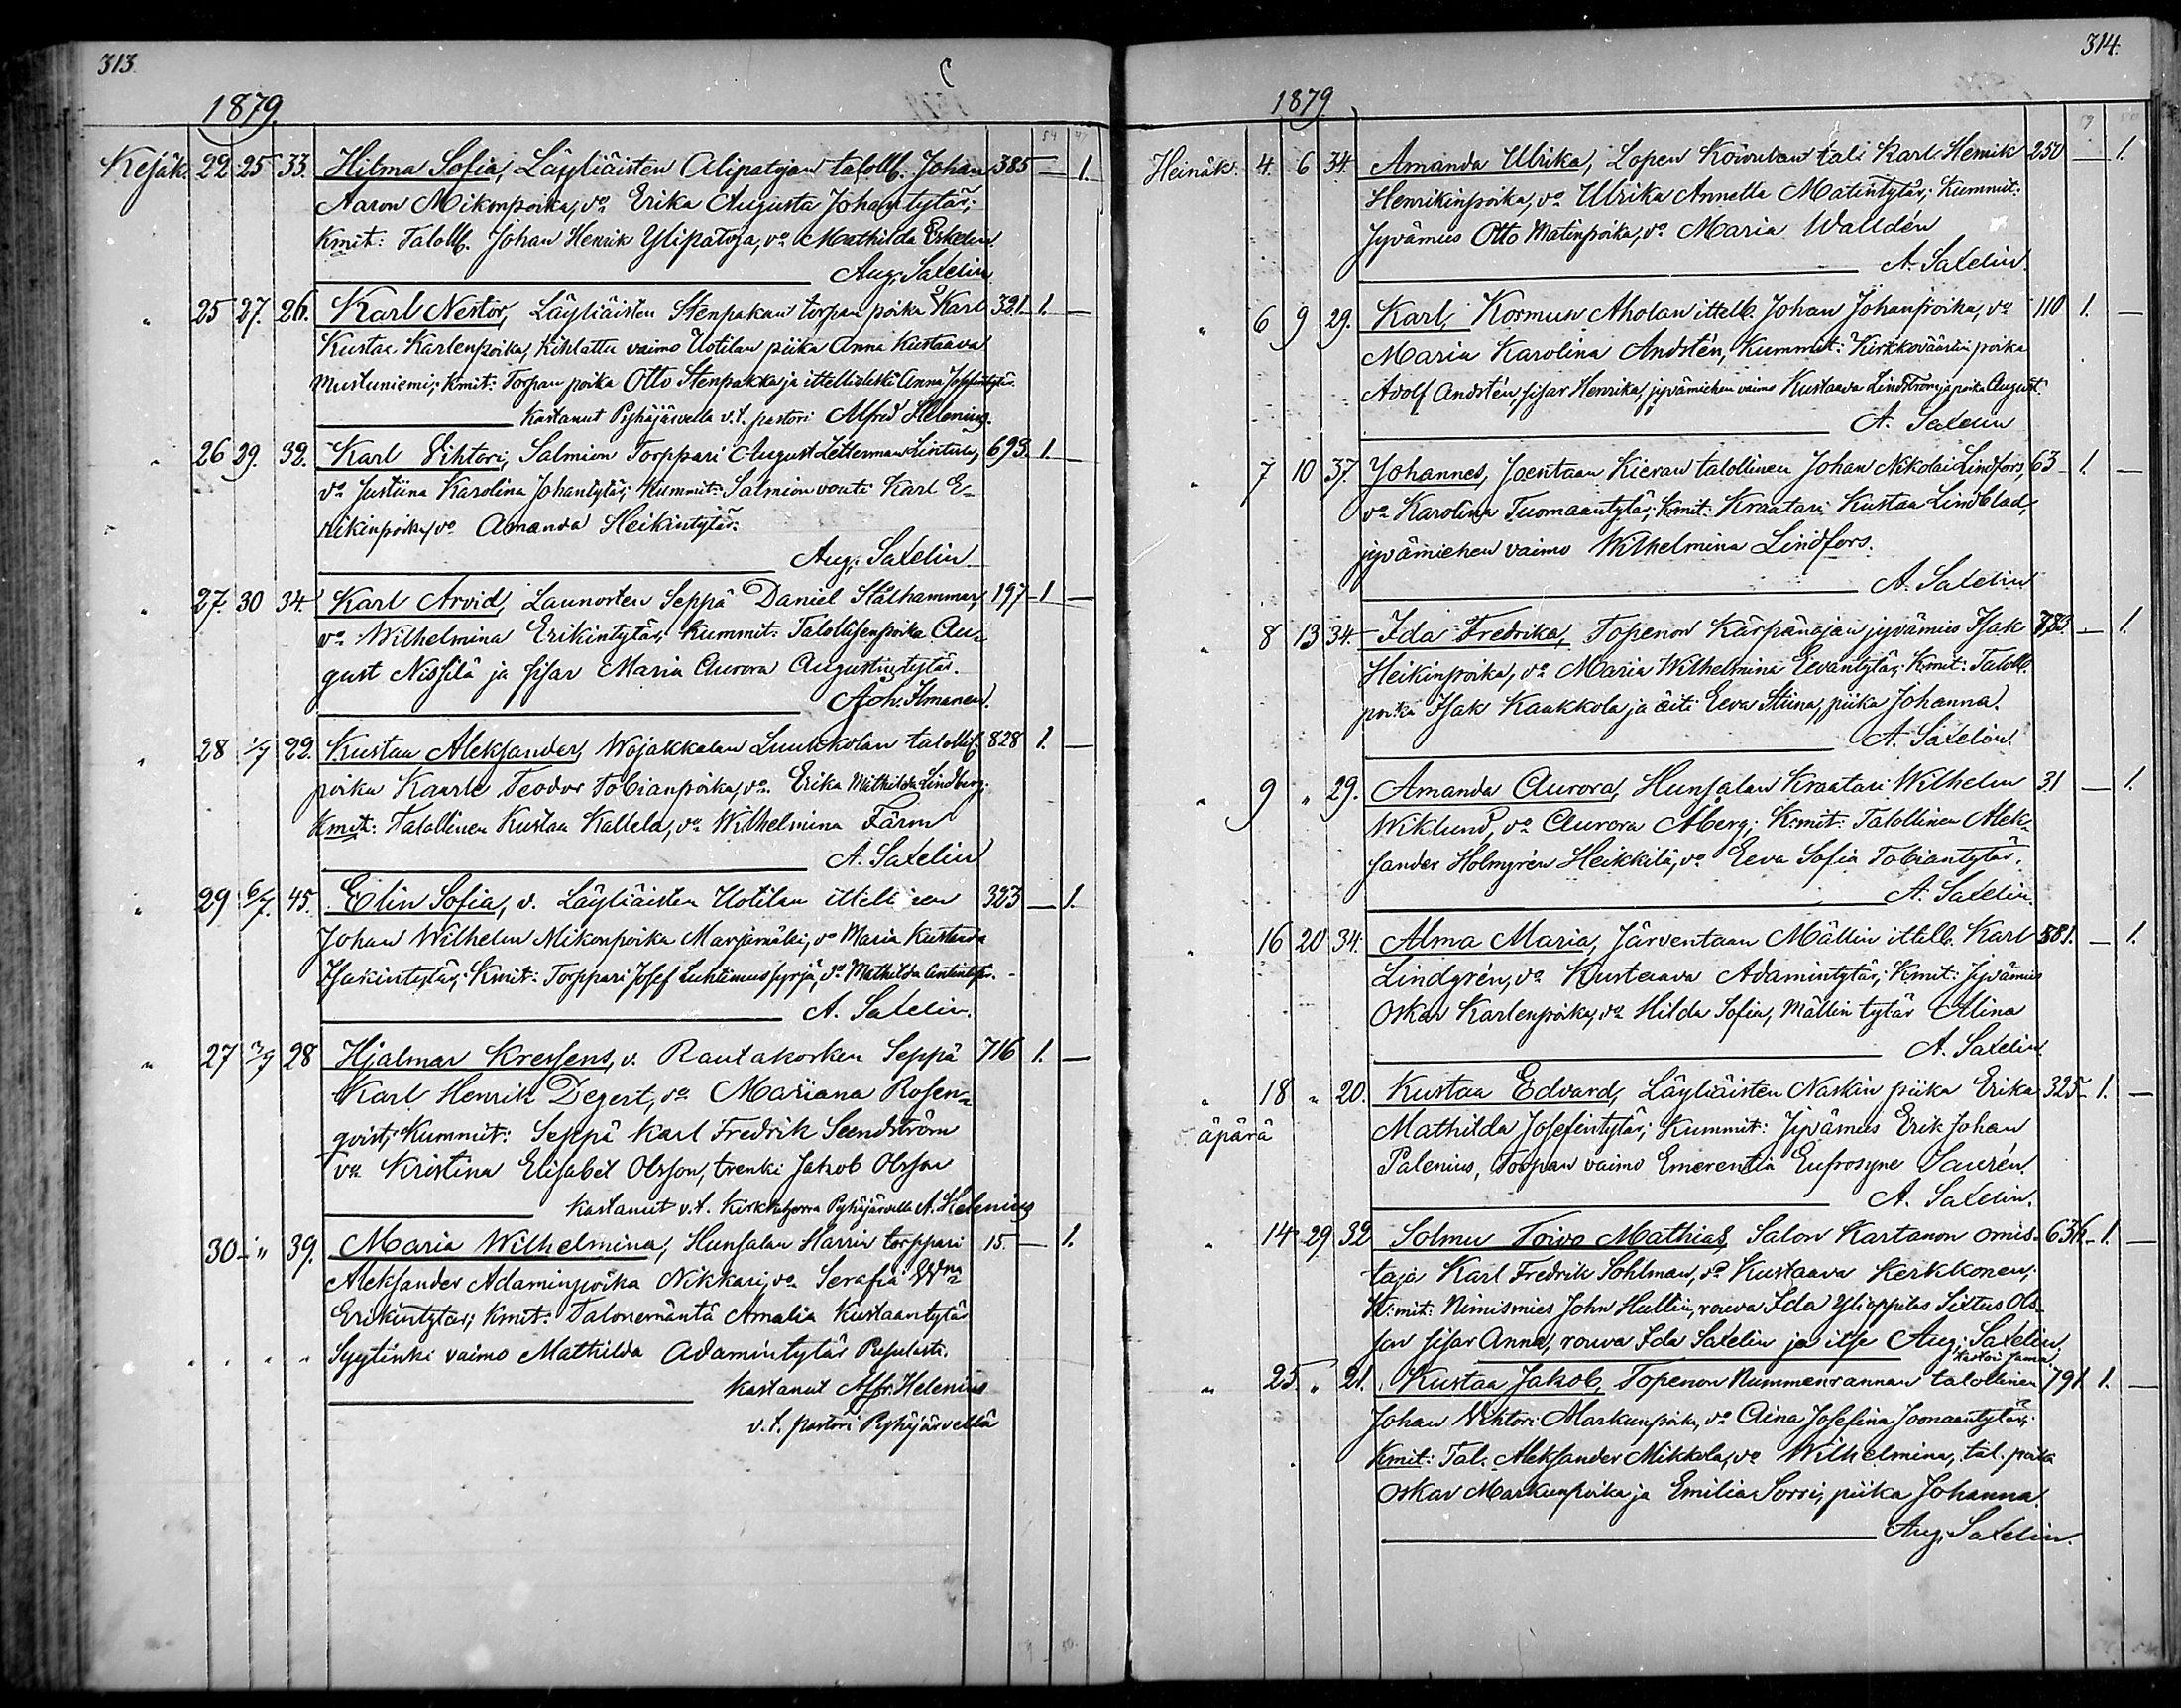 313.
1879.
Kejäk. 22 25 33. Hilma Sofia, Läyliäisten Alipatojan taloll. Johan 385 — 1.
Aaron Mikonpoika, vo Erika Augusta Johantytär;
Kmit: Taloll. Johan Henrik Ylipatoja, vo Mathilda Eskelin.
Aug. Saxelin.
" 25 27. 26. Karl Nestor, Läyliäisten Stenpakan torpan poika Karl 321 1. —
Kustaa Karlenpoika, kihlattu vaimo Uotilan piika Anna Kustaava
Mustuniemi; Kmit: Torpan poika Otto Stenpakka ja ittellisleski Anna
Kastanut Pyhäjärvella v.t. pastori Alfred Helenius.
" 26 29. 32. Karl Vihtori, Salmion Torppari August Zetterman Lintula, 693. 1. —
vo Justiina Karolina Johantytär; Kummit: Salmion vouti Karl E-
rikinpoika, vo Amanda Heikintytär.
Aug. Saxelin.
" 27. 30 34. Karl Arvid, Launosten Seppä Daniel Stålhammar, 197 1 —
vo Wilhelmina Erikintytär; Kummit: Talollisenpoika Au-
gust Nissilä ja sisar Maria Aurora Augustintytär.
Joh. Ilmanen.
" 28 1/7 22. Kustaa Aleksander, Wojakkalan Luukkolan talollis. 828 1. —
poika Kaarle Teodor Tobianpoika, vo Erika Mathilda Lindberg;
Kmit: Talollinen Kustaa Kallela, vo Wilhelmina Färm
A. Saxelin
" 29 6/7. 45. Elin Sofia, v. Läyliäisten Uotilan ittellinen 323 — 1.
Johan Wilhelm Mikonpoika Marjamäki, vo Maria Kustaava
Isakintytär; Kmit: Torppari Josef Luhtimussyrjä, vo Mathilda Antintytär.
A. Saxelin.
" 27 28 Hjalmar Kressens, v. Rautakosken Seppä 716 1. —
Karl Henrik Degert, vo Mariana Rosen-
qvist; Kummit: Seppä Karl Fredrik Sundström
vo Kristina Elisabet Olsson, trenki Jakob Olsson
Kastanut v.t. Kirkkoherra Pyhäjärvella A. Helenius
30 " 39. Maria Wilhelmina, Hunsalan Harrin torppari 15. — 1.
Aleksander Adaminpoika Nikkari, vo Serafia Wma
Erikintytär; Kmit: Talonemäntä Amalia Kustaantytär
Syytinki vaimo Mathilda Adamintytär Pusulasta.
Kastanut Alfr. Helenius
v.t. pastori Pyhäjärvellä
314.
1879.
Heinäk. 4. 6 34. Amanda Ulrika, Lopen Koivulan tal: Karl Henrik 250 — 1.
Henrikinpoika, vo Ulrika Annetta Matintytär; Kummit:
Jyvämies Otto Matinpoika, vo Maria Walldén
A. Saxelin.
" 6 9 29. Karl, Kormun Aholan ittell. Johan Johanpoika, vo 110 1. —
Maria Karolina Andstén, Kummit: Kirkkoväärtin poika
Adolf Andstén, sisar Henrika, jyvämiehen vaimo Kustaava Lindström ja poika August.
A. Saxelin
" 7 10 37. Johannes, Joentaan Kieran talollinen Johan Nikolai Lindfors, 63 1. —
vo Karolina Tuomaantytär; Kmit: Kraatari Kustaa Lindblad,
jyvämiehen vaimo Wilhelmina Lindfors.
A. Saxelin
" 8 13 34. Ida Fredrika, Topenon Kärpänojan jyvämies Isak 783. — 1.
Heikinpoika, vo Maria Wilhelmina Eevantytär; Kmit: Taloll.
poika Isak Kaakkola ja äiti Eeva Stiina, piika Johanna.
A. Saxelin.
" 9 " 29. Amanda Aurora, Hunsalan Kraatari Wilhelm 31 — 1.
Wiklund, vo Aurora Åberg; K:mit: Talollinen Alek-
sander Holmgrén Heikkilä, vo Eeva Sofia Tobiantytär.
A. Saxelin.
" 16 20 34. Alma Maria, Järventaan Mällin ittell. Karl 581. — 1.
Lindgrén, vo Kustaava Adamintytär; Kmit: Jyvämies
Oskar Karlenpoika, vo Hilda Sofia, Mällin tytär Alina
A. Saxelin
" 18 " 20. Kustaa Edvard, Läyliäisten Naskin piika Erika 325 1. —
äpärä Mathilda Josefintytär; Kummit: Jyvämies Erik Johan
Palenius, Torpan vaimo Emerentia Eufrosyne Saurén.
A. Saxelin.
" 14 29 32 Solmu Toivo Mathias, Salon Kartanon omis- 636 1. —
taja Karl Fredrik Sohlman, vo Kustaava Kerkkonen;
K:mit: Nimismies John Hullin, rouva Ida Ylioppilas Sixtus Ols-
son sisar Anna, rouva Ida Saxelin ja itse Aug. Saxelin.
" 25. " 21. Kustaa Jakob, Topenon Nummenrannan talollinen 791. 1. —
Johan Vihtori Markunpoika, vo Aina Josefina Joonaantytär;
Kmit: Tal. Aleksander Mikkola, vo Wilhelmina, tal. poika
Oskar Markunpoika ja Emilia Sorri; piika Johanna.
Aug. Saxelin.